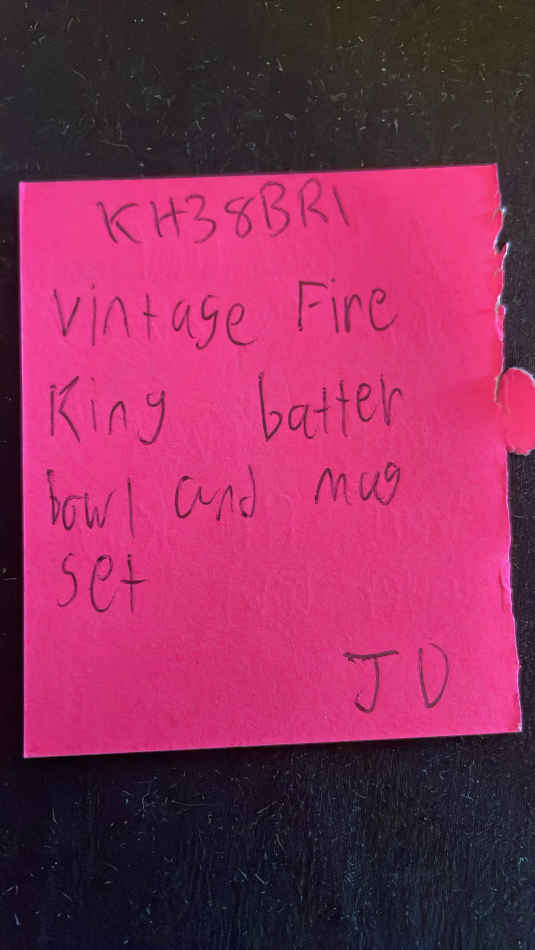 KH38BR1
Vintage Fire
King batter
bowl and mug
set
JD